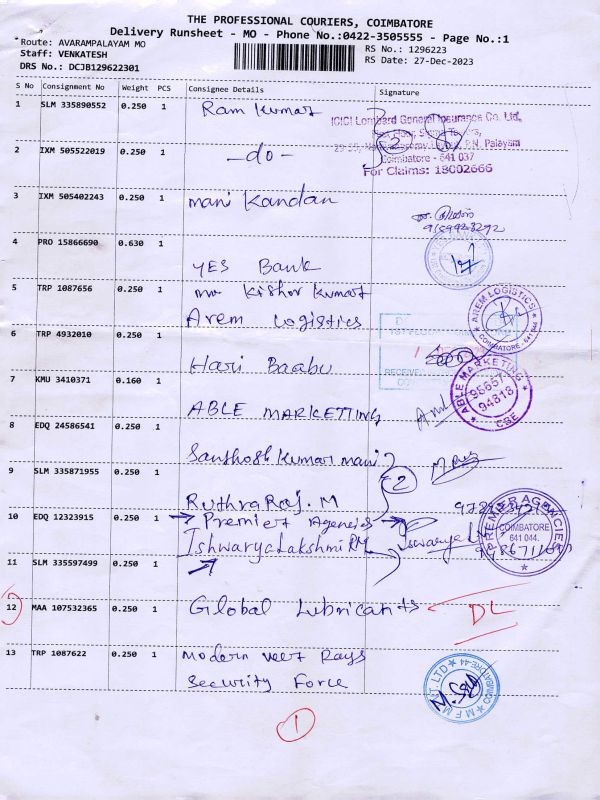 THE PROFESSIONAL COURIERS, COIMBATORE
Delivery Runsheet - MO - Phone No.:0422-3505555 - Page No.:1
Route: AVARAMPALAYAM MO
RS No.: 1296223
Staff: VENKATESH
RS Date: 27-Dec-2023
DRS No.: DCJB129622301
S No Consignment No Weight PCS Consignee Details Signature
1 SLM 335890552 0.250 1 Ram Kumar
ICICI Lombard General Insurance Co. Ltd,
Coimbatore - 641 037
For Claims: 18002666
2 IXM 505522019 0.250 1 -do-
3 IXM 505402243 0.250 1 Mani Kandan
4 PRO 15866690 0.630 1 YES Bank
5 TRP 1087656 0.250 1 Mr Kishor Kumar
Arem Logistics
AREM LOGISTICS
COIMBATORE - 641 044
6 TRP 4932010 0.250 1 Hari Baabu
RECEIVED
7 KMU 3410371 0.160 1 ABLE MARKETTING
ABLE MARKETING
95657
94818
CBE
8 EDQ 24586541 0.250 1 Santhosh Kumar Mani
9 SLM 335871955 0.250 1 Ruthra Raj. M
2
10 EDQ 12323915 0.250 1 Premier Agencies
Ishwarya Lakshmi RM
Iswarya L
PREMIER AGENCIES
COIMBATORE
641 044.
11 SLM 335597499 0.250 1
12 MAA 107532365 0.250 1 Global Lubricants DL
13 TRP 1087622 0.250 1 Modern Veer Rays
Security Force
1